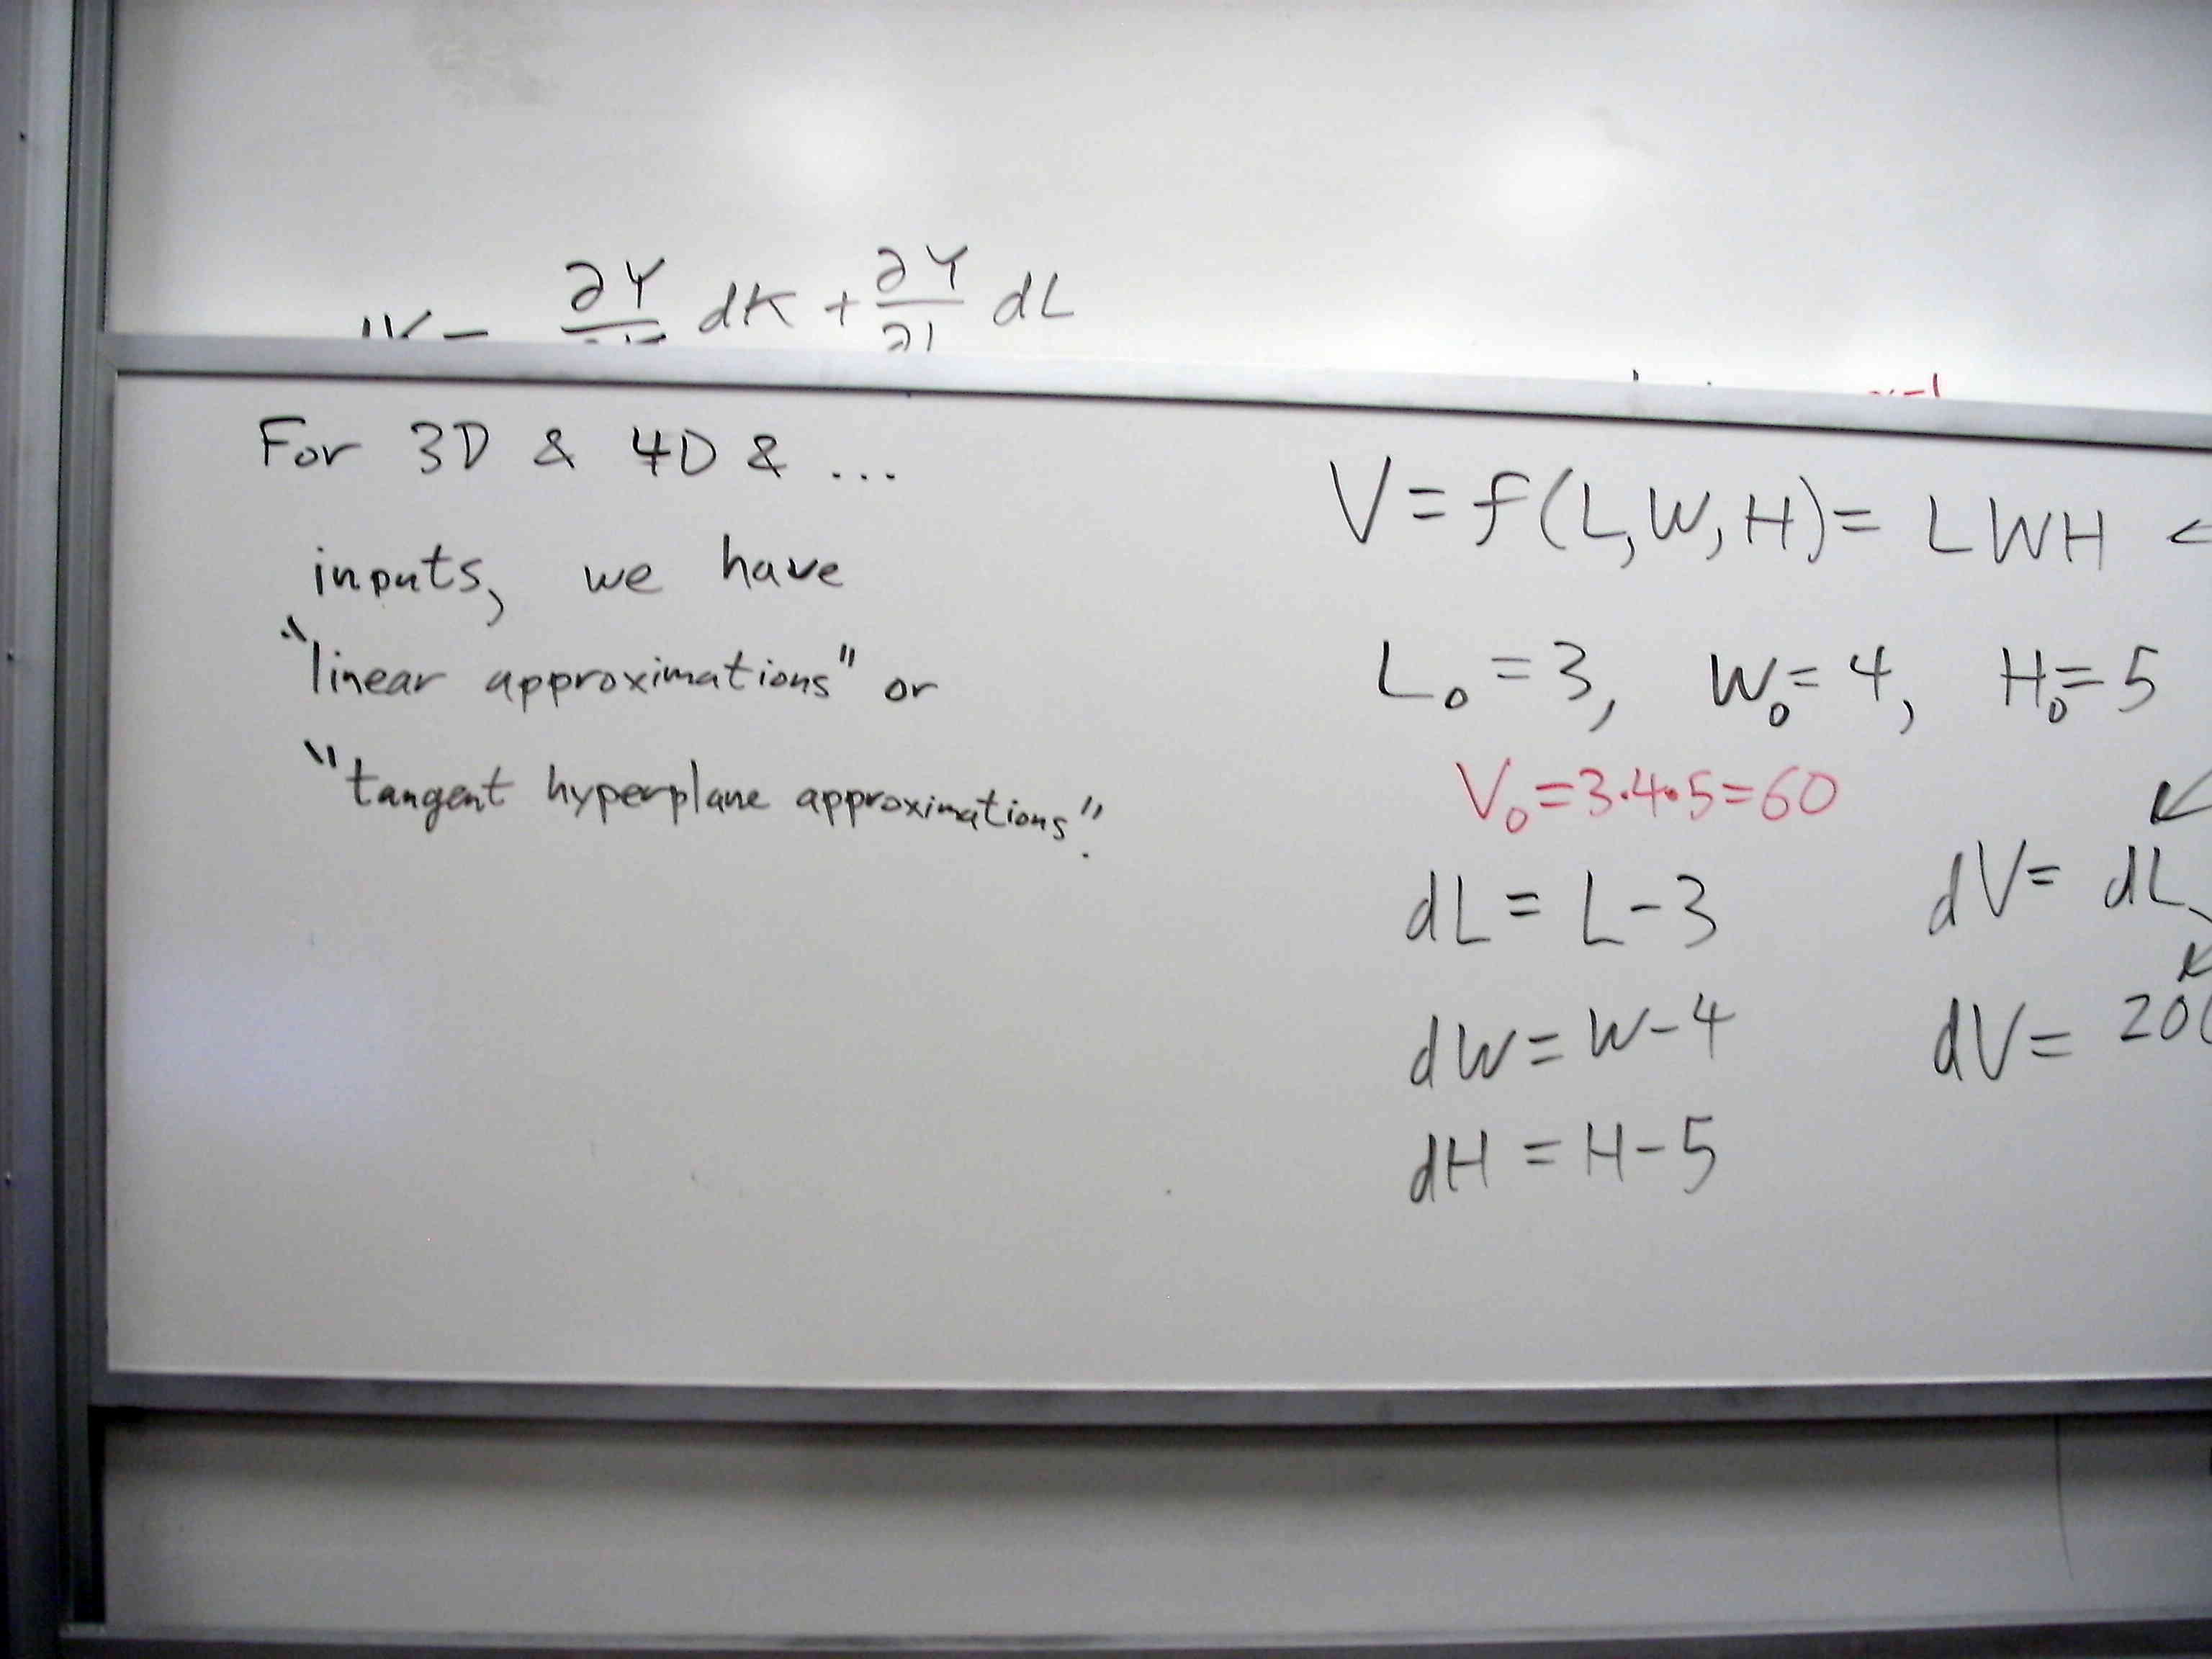 ∂Y dK + ∂Y dL
For 3D & 4D & ...
inputs, we have
"linear approximations" or
"tangent hyperplane approximations".
V = f(L, W, H) = LWH
L₀ = 3, W₀ = 4, H₀ = 5
V₀ = 3·4·5 = 60
dL = L - 3
dV = dL
dW = W - 4
dV = 20(
dH = H - 5